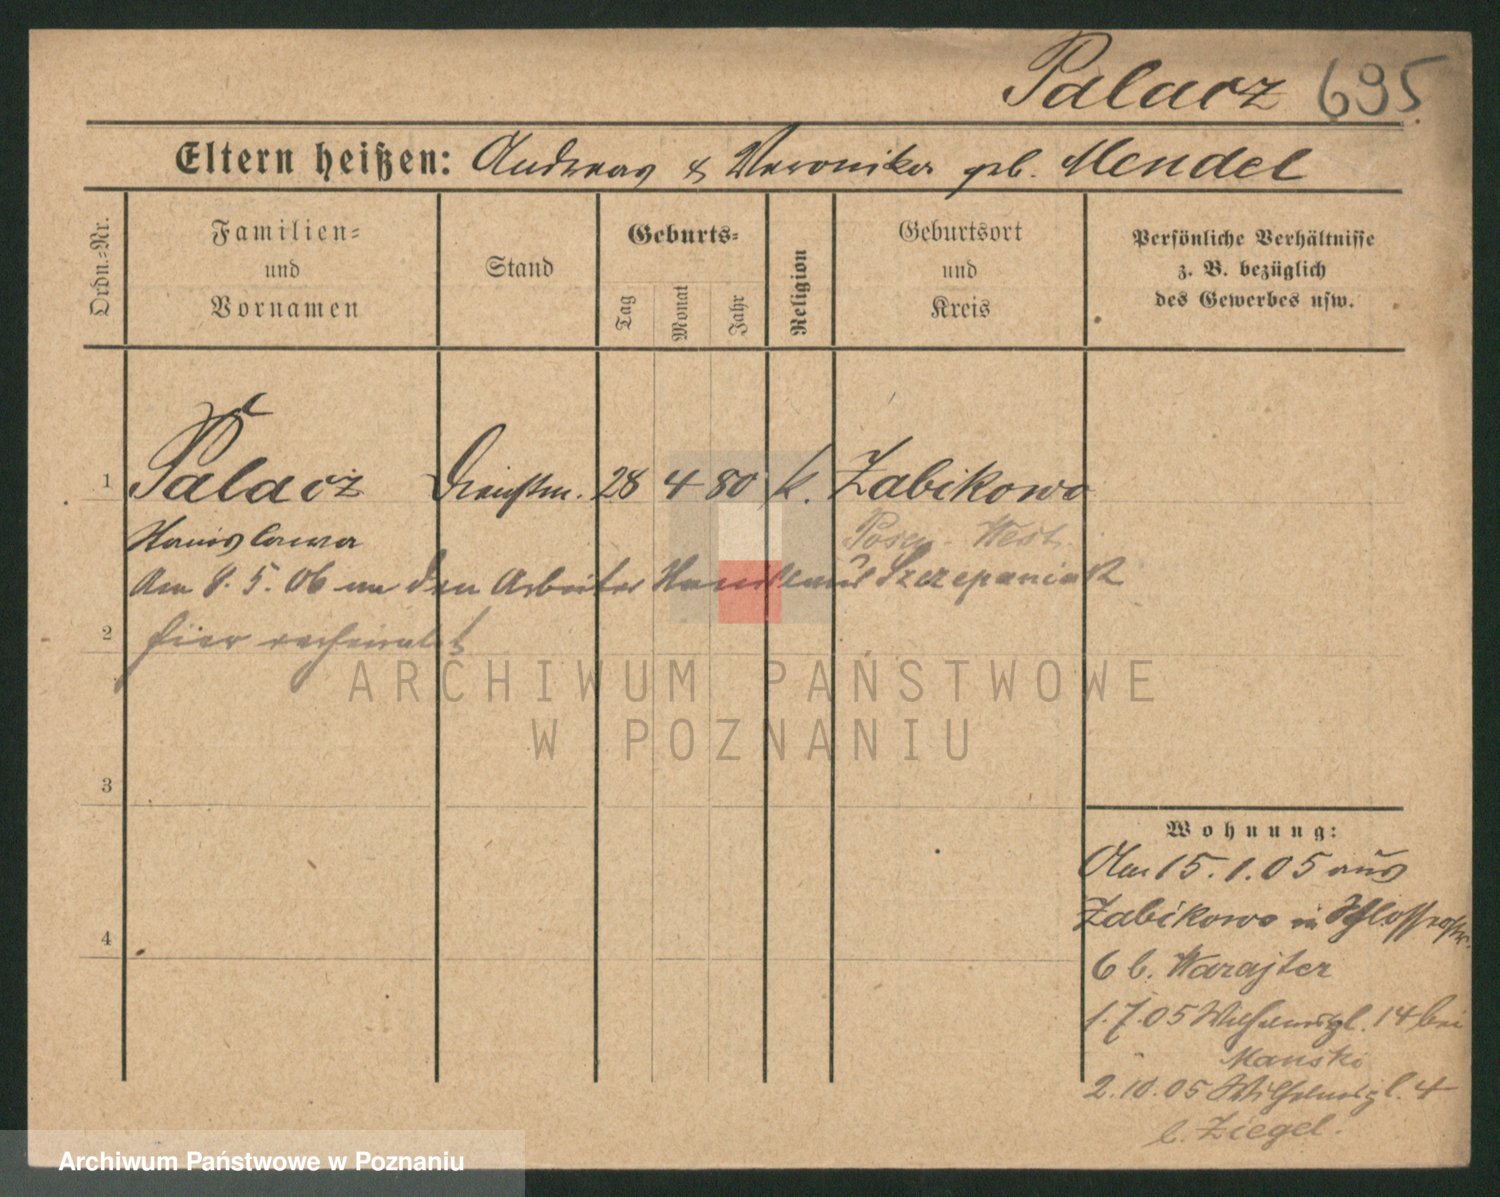 Palacz 695.
Eltern heißen: Andreas & Veronika geb. Mendel
Ordn.-Nr.
Familien-
und
Vornamen
Stand
Geburts-
Tag
Monat
Jahr
Religion
Geburtsort
und
Kreis
Persönliche Verhältnisse
z. B. bezüglich
des Gewerbes usw.
1 Palacz Dienstm. 28 4 80 k. Zabikowo
Stanislawa Posen - West
Am 8. 5. 06 an den Arbeiter Stanislaus Szczepaniak
2 hier verheiratet
3
4
Wohnung:
Am 15. 1. 05 aus
Zabikowo in Schlossstr.
6 b.
1. 7. 05 Wilhelmspl. 14 bei
Manski
2. 10. 05 Wilhelmspl. 4
b. Ziegel.
ARCHIWUM PAŃSTWOWE
W POZNANIU
Archiwum Państwowe w Poznaniu